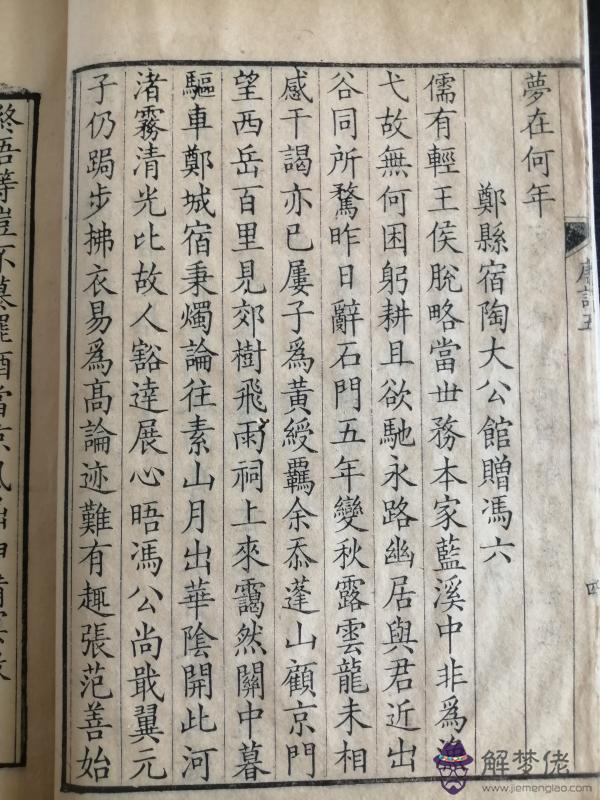 夢在何年
鄭縣宿陶大公館贈馮六
儒有輕王侯脫略當世務本家藍溪中非爲
弋故無何困躬耕且欲馳永路幽居與君近出
谷同所騖昨日辭石門五年變秋露雲龍未相
感干謁亦已屢子爲黃綬羈余忝蓬山顧京門
望西岳百里見郊樹飛雨祠上來靄然關中暮
驅車鄭城宿秉燭論往素山月出華陰開此河
渚霧清光比故人豁達展心晤馮公尚戢翼元
子仍跼步拂衣易爲高論迹難有趣張范善始
終吾等豈不慕罷酒當涼風屈伸備冥數
解梦佬
www.jiemenglao.com